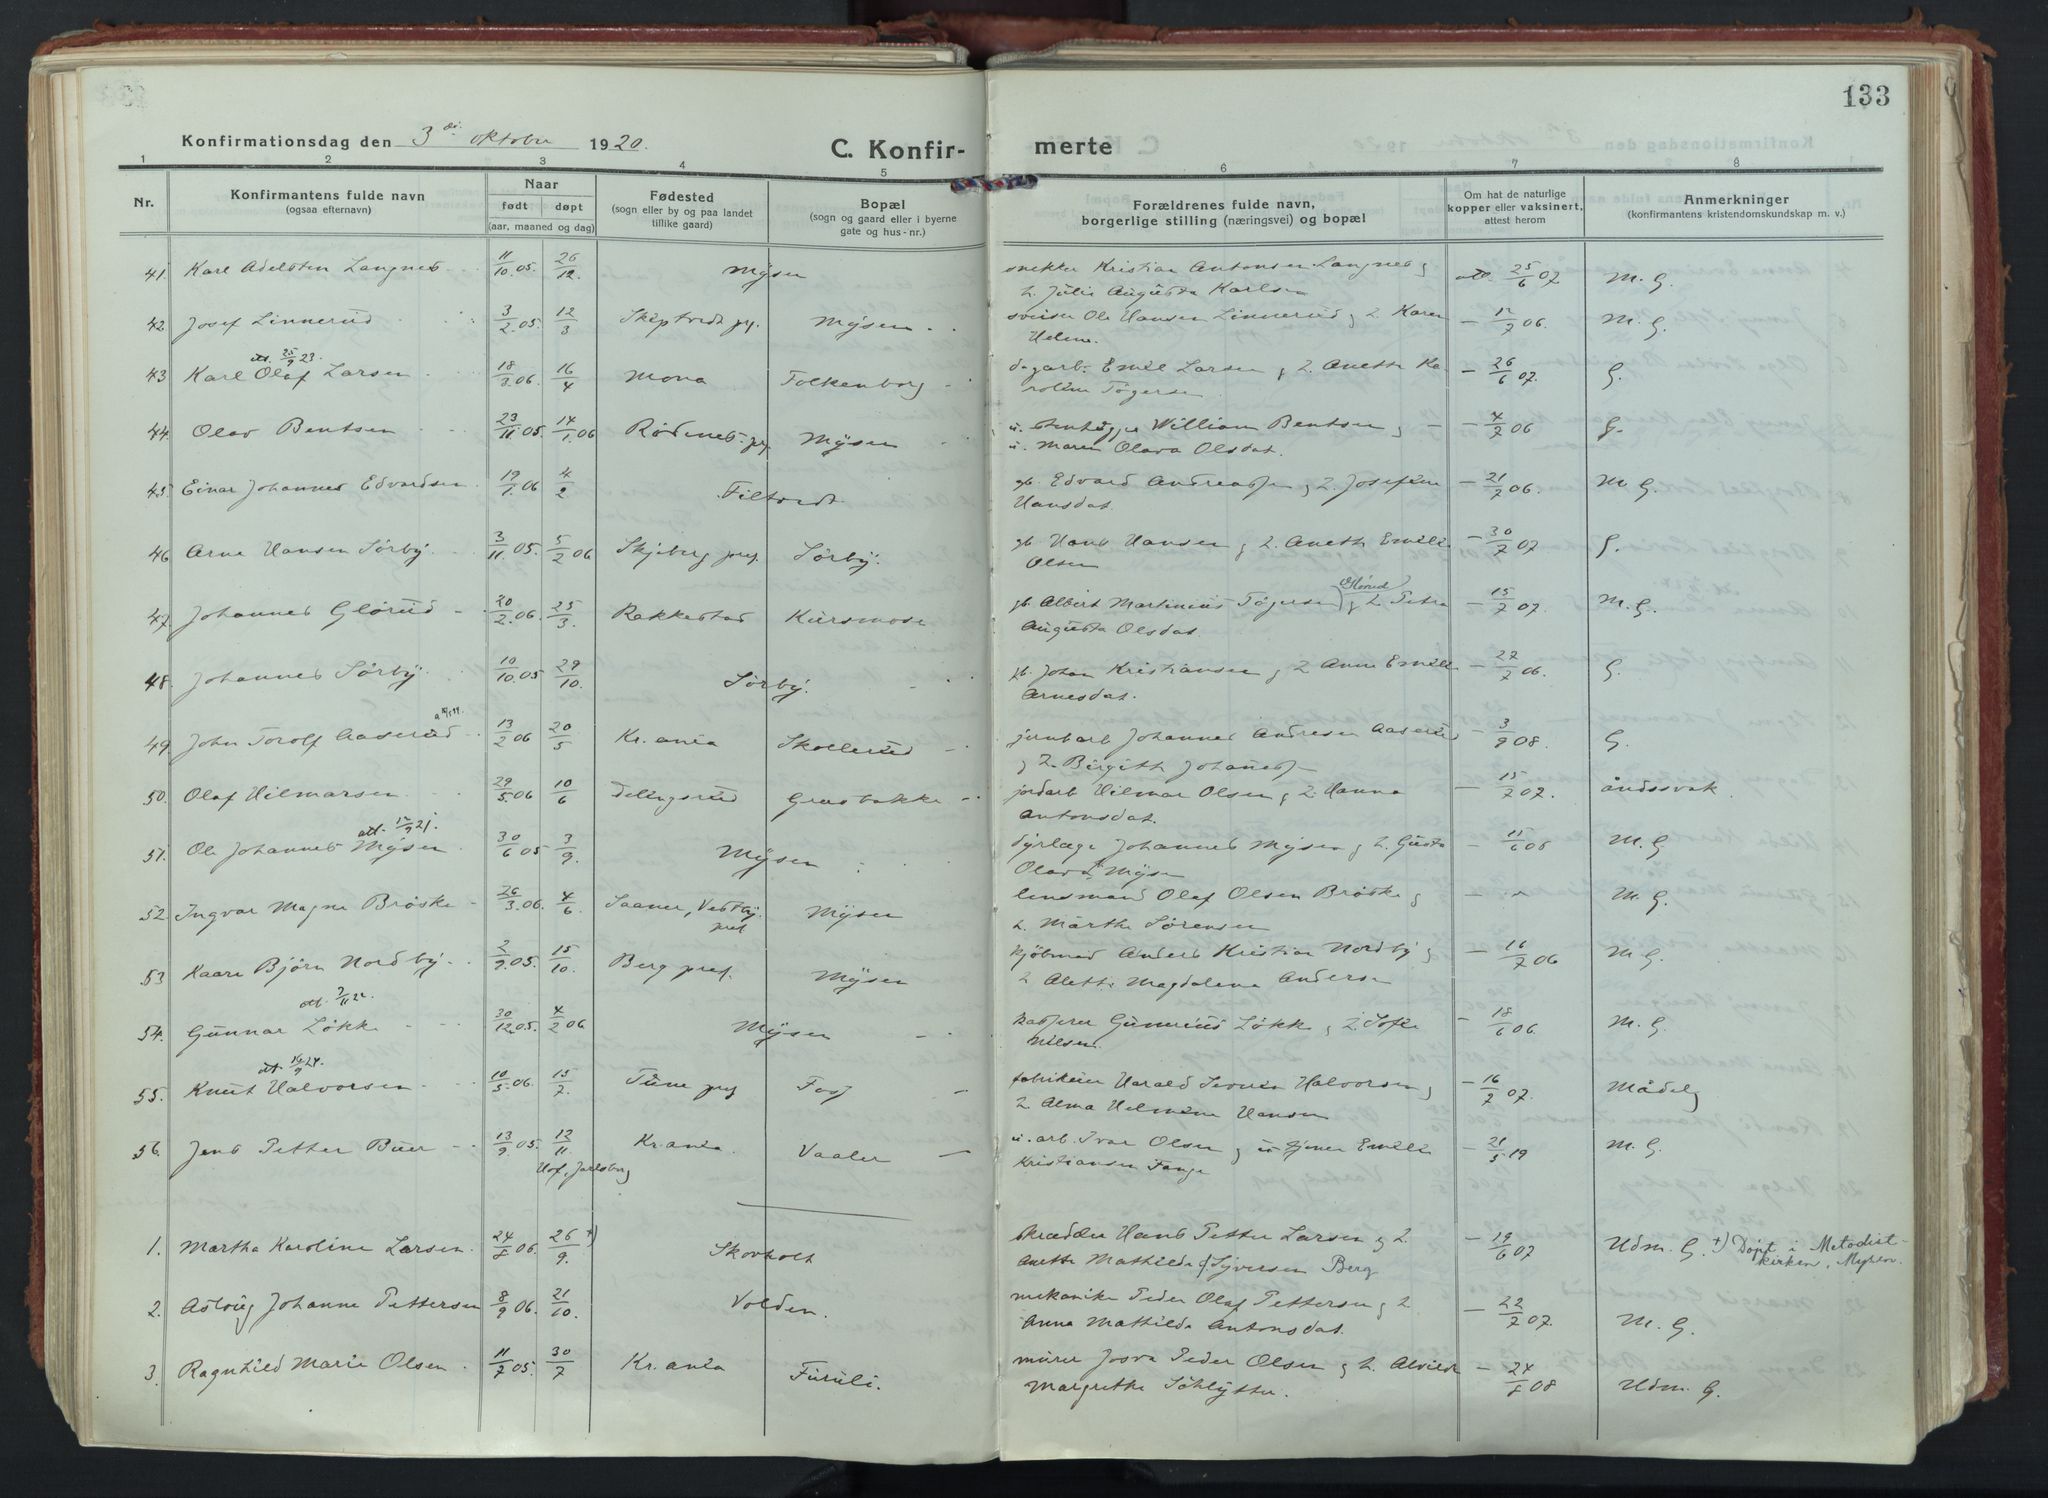 133
Konfirmationsdag den 3die oktober 1920. C. Konfir- merte
1 2 3 4 5 6 7 8
Nr. Konfirmantens fulde navn (ogsaa efternavn) Naar født døpt (aar, maaned og dag) Fødested (sogn eller by og paa landet tillike gaard) Bopæl (sogn og gaard eller i byerne gate og hus-nr.) Forældrenes fulde navn, borgerlige stilling (næringsvei) og bopæl Om hat de naturlige kopper eller vaksinert, attest herom Anmerkninger (konfirmantens kristendomskundskap m. v.)
41. Karl Adelsten Langnes 11/10 05. 26/12. Mysen snekker Kristian Antonsen Langnes og att. 25/6 07 M. G.
h. Julie Augusta Karlsen
42. Josef Linnerud 3/2 05. 12/3 Skiptvedt pg. Mysen sveiser Ole Hansen Linnerud og h. Karen — 12/7 06. M. G.
Helene.
att. 25/9 23.
43 Karl Olaf Larsen 18/3 06. 16/4 Mona Folkenborg dagarb. Emil Larsen og h. Anette Ka- — 26/6 07. G.
roline Tøgersen
44. Olav Bentsen 23/11 05. 14/1 06 Rødenes pg. Mysen u. William Bentsen og — 4/7 06 G.
u. Maren Olava Olsdat.
45. Einar Johannes Edvardsen 19/1 06 4/2 Filtvedt gb. Edvard Andreassen og h. Josefine — 21/7 06. M. G.
Hansdat.
46 Arne Hansen Sørby 3/11 05. 5/2 06 Skjeberg pres. Sørby. gb. Hans Hansen og h. Aneth Emilie — 30/7 07 G.
Olsen
47. Johannes Glørud 20/2 06. 25/3 Rakkestad Kursmose gb. Albert Martinius Tøgersen (Glørud) og h. Petra — 15/7 07. M. G.
Augusta Olsdat.
48. Johannes Sørby 10/10 05 29/10. Sørby. gb. Johan Kristiansen og h. Anne Emilie — 27/7 06. G.
Arnesdat.
49. John Torolf Aaserud 13/2 06 20/5 Kr.ania Skollerud jernbarb Johannes Andresen Aaserud — 3/9 08. G.
og h. Birgitte Johaness
50. Olaf Hilmarsen 29/5 06 10/6 Delingsrud Græsbakke jordarb Hilmar Olsen og h. Hanna — 15/7 07. åndssvak.
Antonsdat.
att. 12/9 21.
51. Ole Johannes Mysen 30/6 05 3/9. Mysen dyrlæge Johannes Mysen og h. Gusta — 11/6 06 M. G
Olava Mysen
52. Ingvar Magne Brøske 26/3 06. 4/6 Saaner, Vestby pres. Mysen lensmand Olaf Olsen Brøske og — " M. G.
h. Marthe Sørensen
53 Kaare Bjørn Nordby 2/9. 05. 15/10. Berg pres. Mysen kjøbmand Anders Kristian Nordby og — 16/7 06 M. G.
h. Alette Magdalena Andersen
att. 7/11 22.
54. Gunnar Løkke 30/12 05. 4/2 06 Mysen kasserer Gunerius Løkke og h. Sofie — 18/6 06. M. G.
Nilsen.
att 16/9 24.
55. Knut Halvorsen 10/5 06. 15/7. Tune pg Foss fabrikeier Harald Severin Halvorsen og — 16/7 07. Mådelg
h. Alma Helmine Hansen
56. Jens Petter Buer 13/9. 05. 12/11 Kr.ania. Vaaler u. arb. Ivar Olsen og u. tjener Emilie — 21/5 19 M. G.
Hof, Jarlsberg Kristiansen Fange
1. Martha Karoline Larsen. 24/8 06. 26/9. +) Skovholt skrædder Hans Petter Larsen og h. — 19/6 07 Udm. G. +) Døpt i Metodist-
Anette Mathilde Syversen Berg kirken, Mysen.
2. Aslaug Johanne Pettersen 8/9 06. 21/10. Volden. mekaniker Peder Olaf Pettersen og h. — 22/7 07. M. G.
Anna Mathilde Antonsdat.
3. Ragnhild Marie Olsen 11/7 05. 30/7 Kr.ania Furuli. murer Josva Peder Olsen og h. Alvilde — 24/8 08 Udm. G.
Margrethe Schlytter.